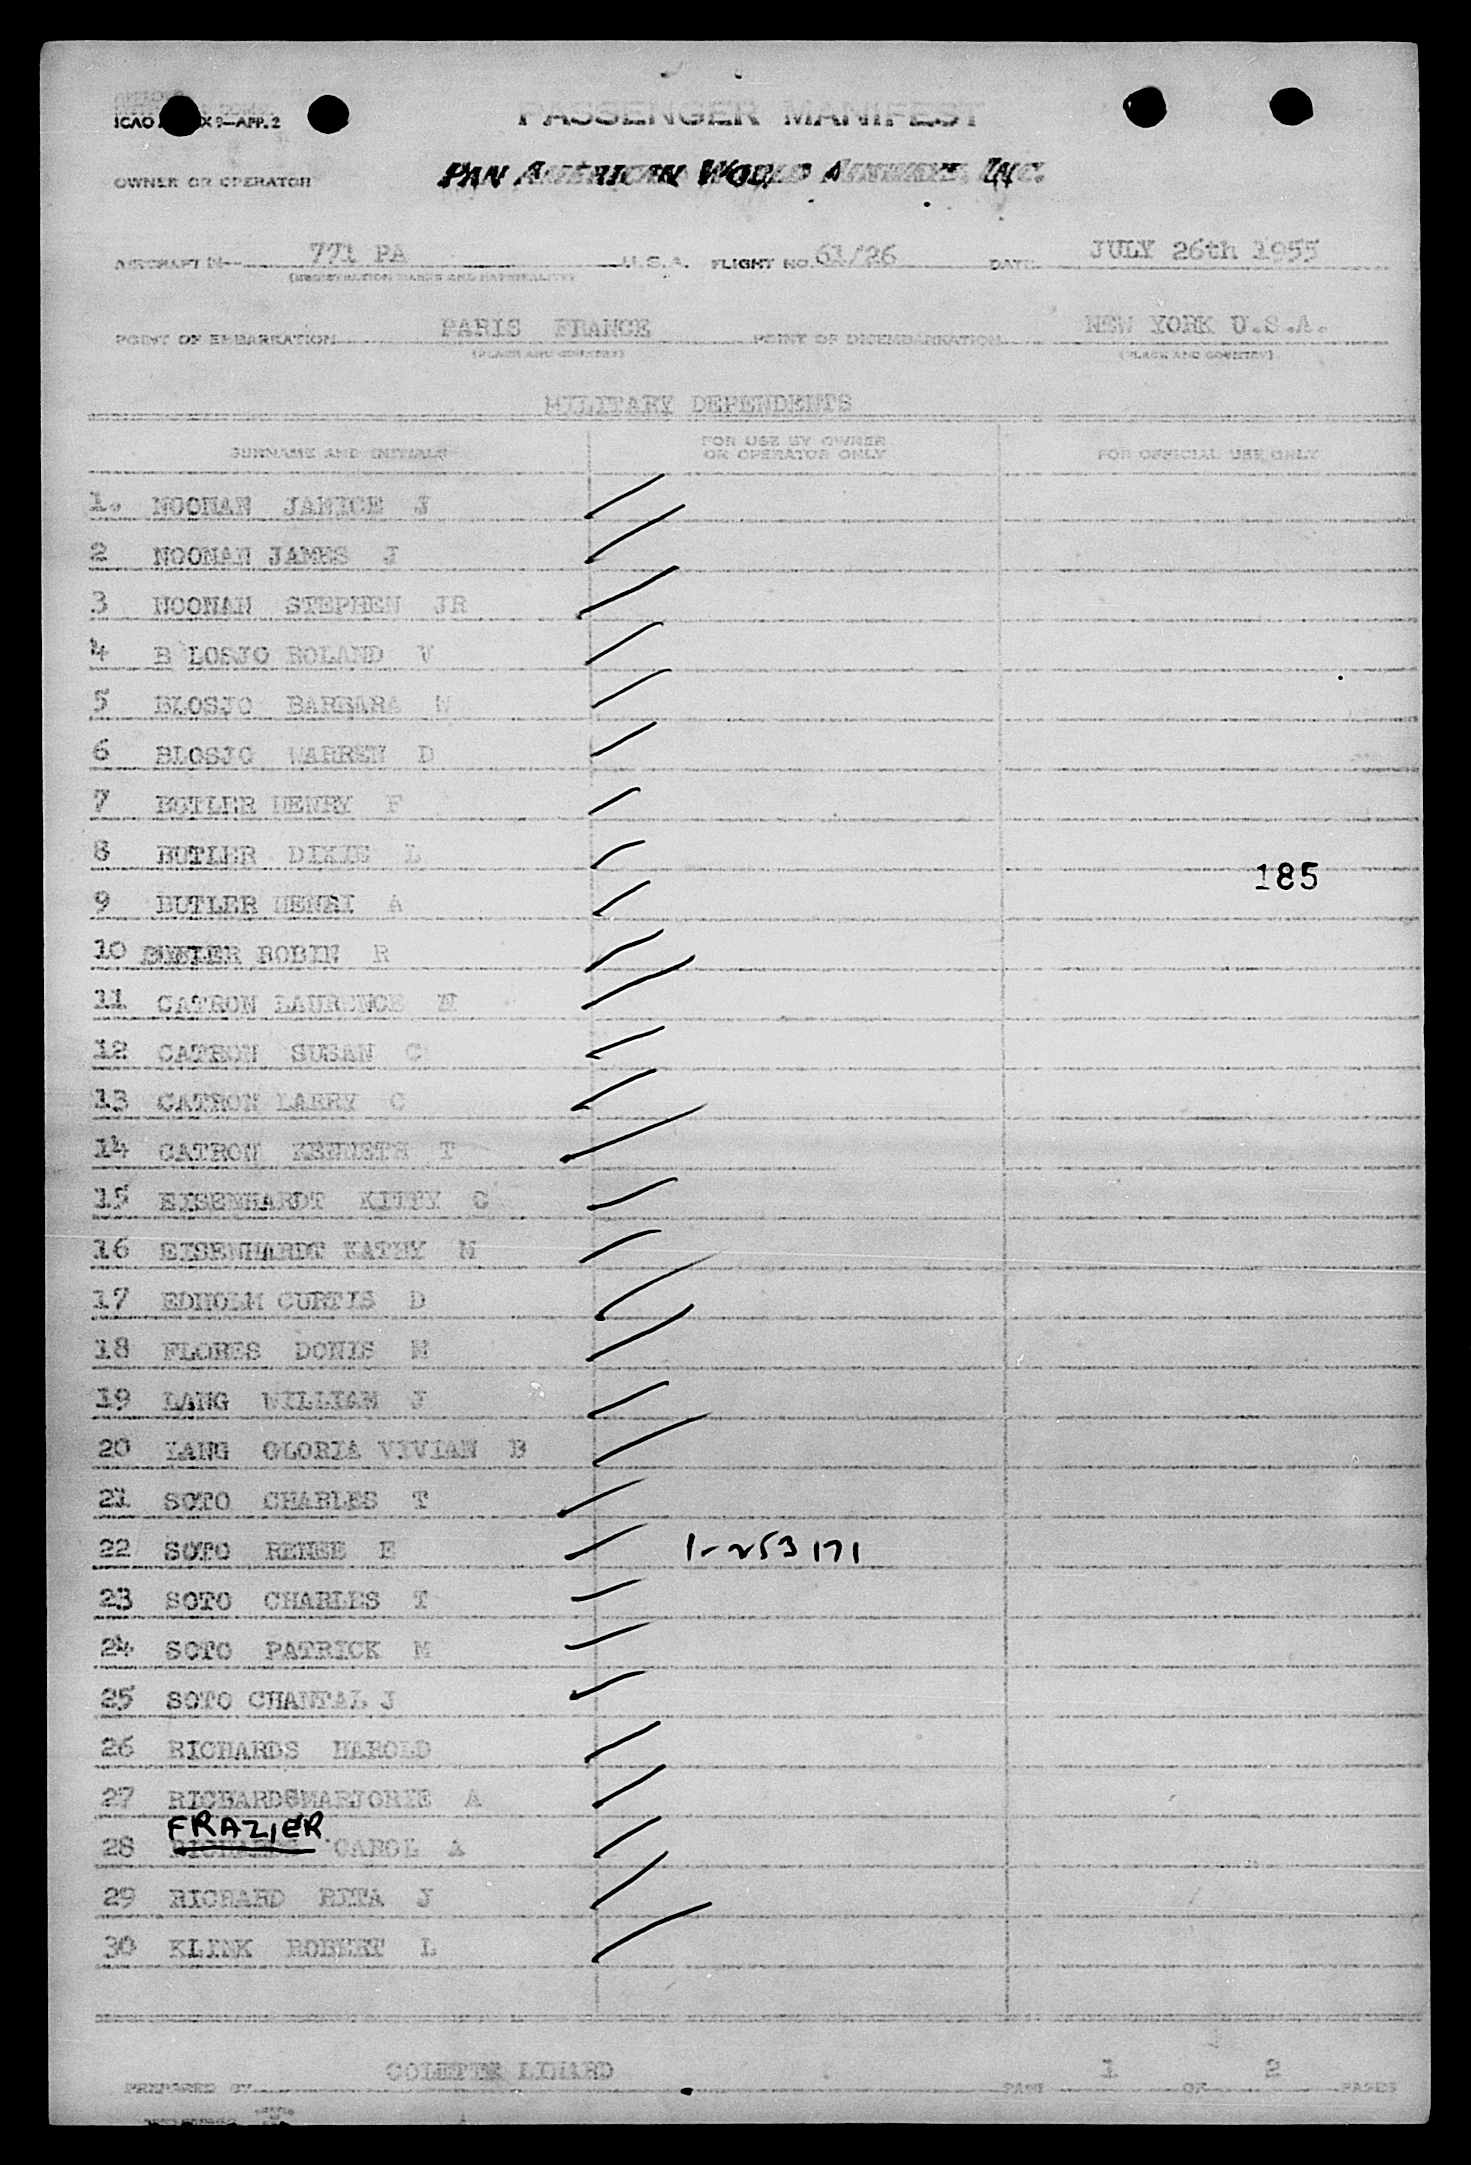 ICAO X 9—APP. 2
PASSENGER MANIFEST
OWNER OR OPERATOR PAN AMERICAN WORLD AIRWAYS, INC.
AIRCRAFT N- 771 PA U.S.A. FLIGHT NO. 61/26 DATE JULY 26th 1955
(REGISTRATION MARKS AND NATIONALITY)
POINT OF EMBARKATION PARIS FRANCE POINT OF DISEMBARKATION NEW YORK U.S.A.
(PLACE AND COUNTRY) (PLACE AND COUNTRY)
MILITARY DEPENDENTS
SURNAME AND INITIALS FOR USE BY OWNER OR OPERATOR ONLY FOR OFFICIAL USE ONLY
1. NOONAN JANICE J
2 NOONAN JAMES J
3 NOONAN STEPHEN JR
4 B LOSJO ROLAND V
5 BLOSJO BARBARA
6 BLOSJO WARREN D
7 BUTLER HENRY F
8 BUTLER DIXIE L
185
9 BUTLER HENRI A
10 BUTLER ROBIN R
11 CATRON LAURENCE M
12 CATRON SUSAN C
13 CATRON LARRY C
14 CATRON KENNETH T
15 EISENHARDT KITTY C
16 EISENHARDT KATHY M
17 EDHOLM CURTIS D
18 FLORES DONIS M
19 LANG WILLIAM J
20 LANG GLORIA VIVIAN B
21 SOTO CHARLES T
22 SOTO RENEE E 1-253171
23 SOTO CHARLES T
24 SOTO PATRICK M
25 SOTO CHANTAL J
26 RICHARDS HAROLD
27 RICHARDSMARJORIE A
FRAZIER
28 RICHARDS CAROL A
29 RICHARD RITA J
30 KLINK ROBERT L
PREPARED BY COLETTE LINARD PAGE 1 OF 2 PAGES